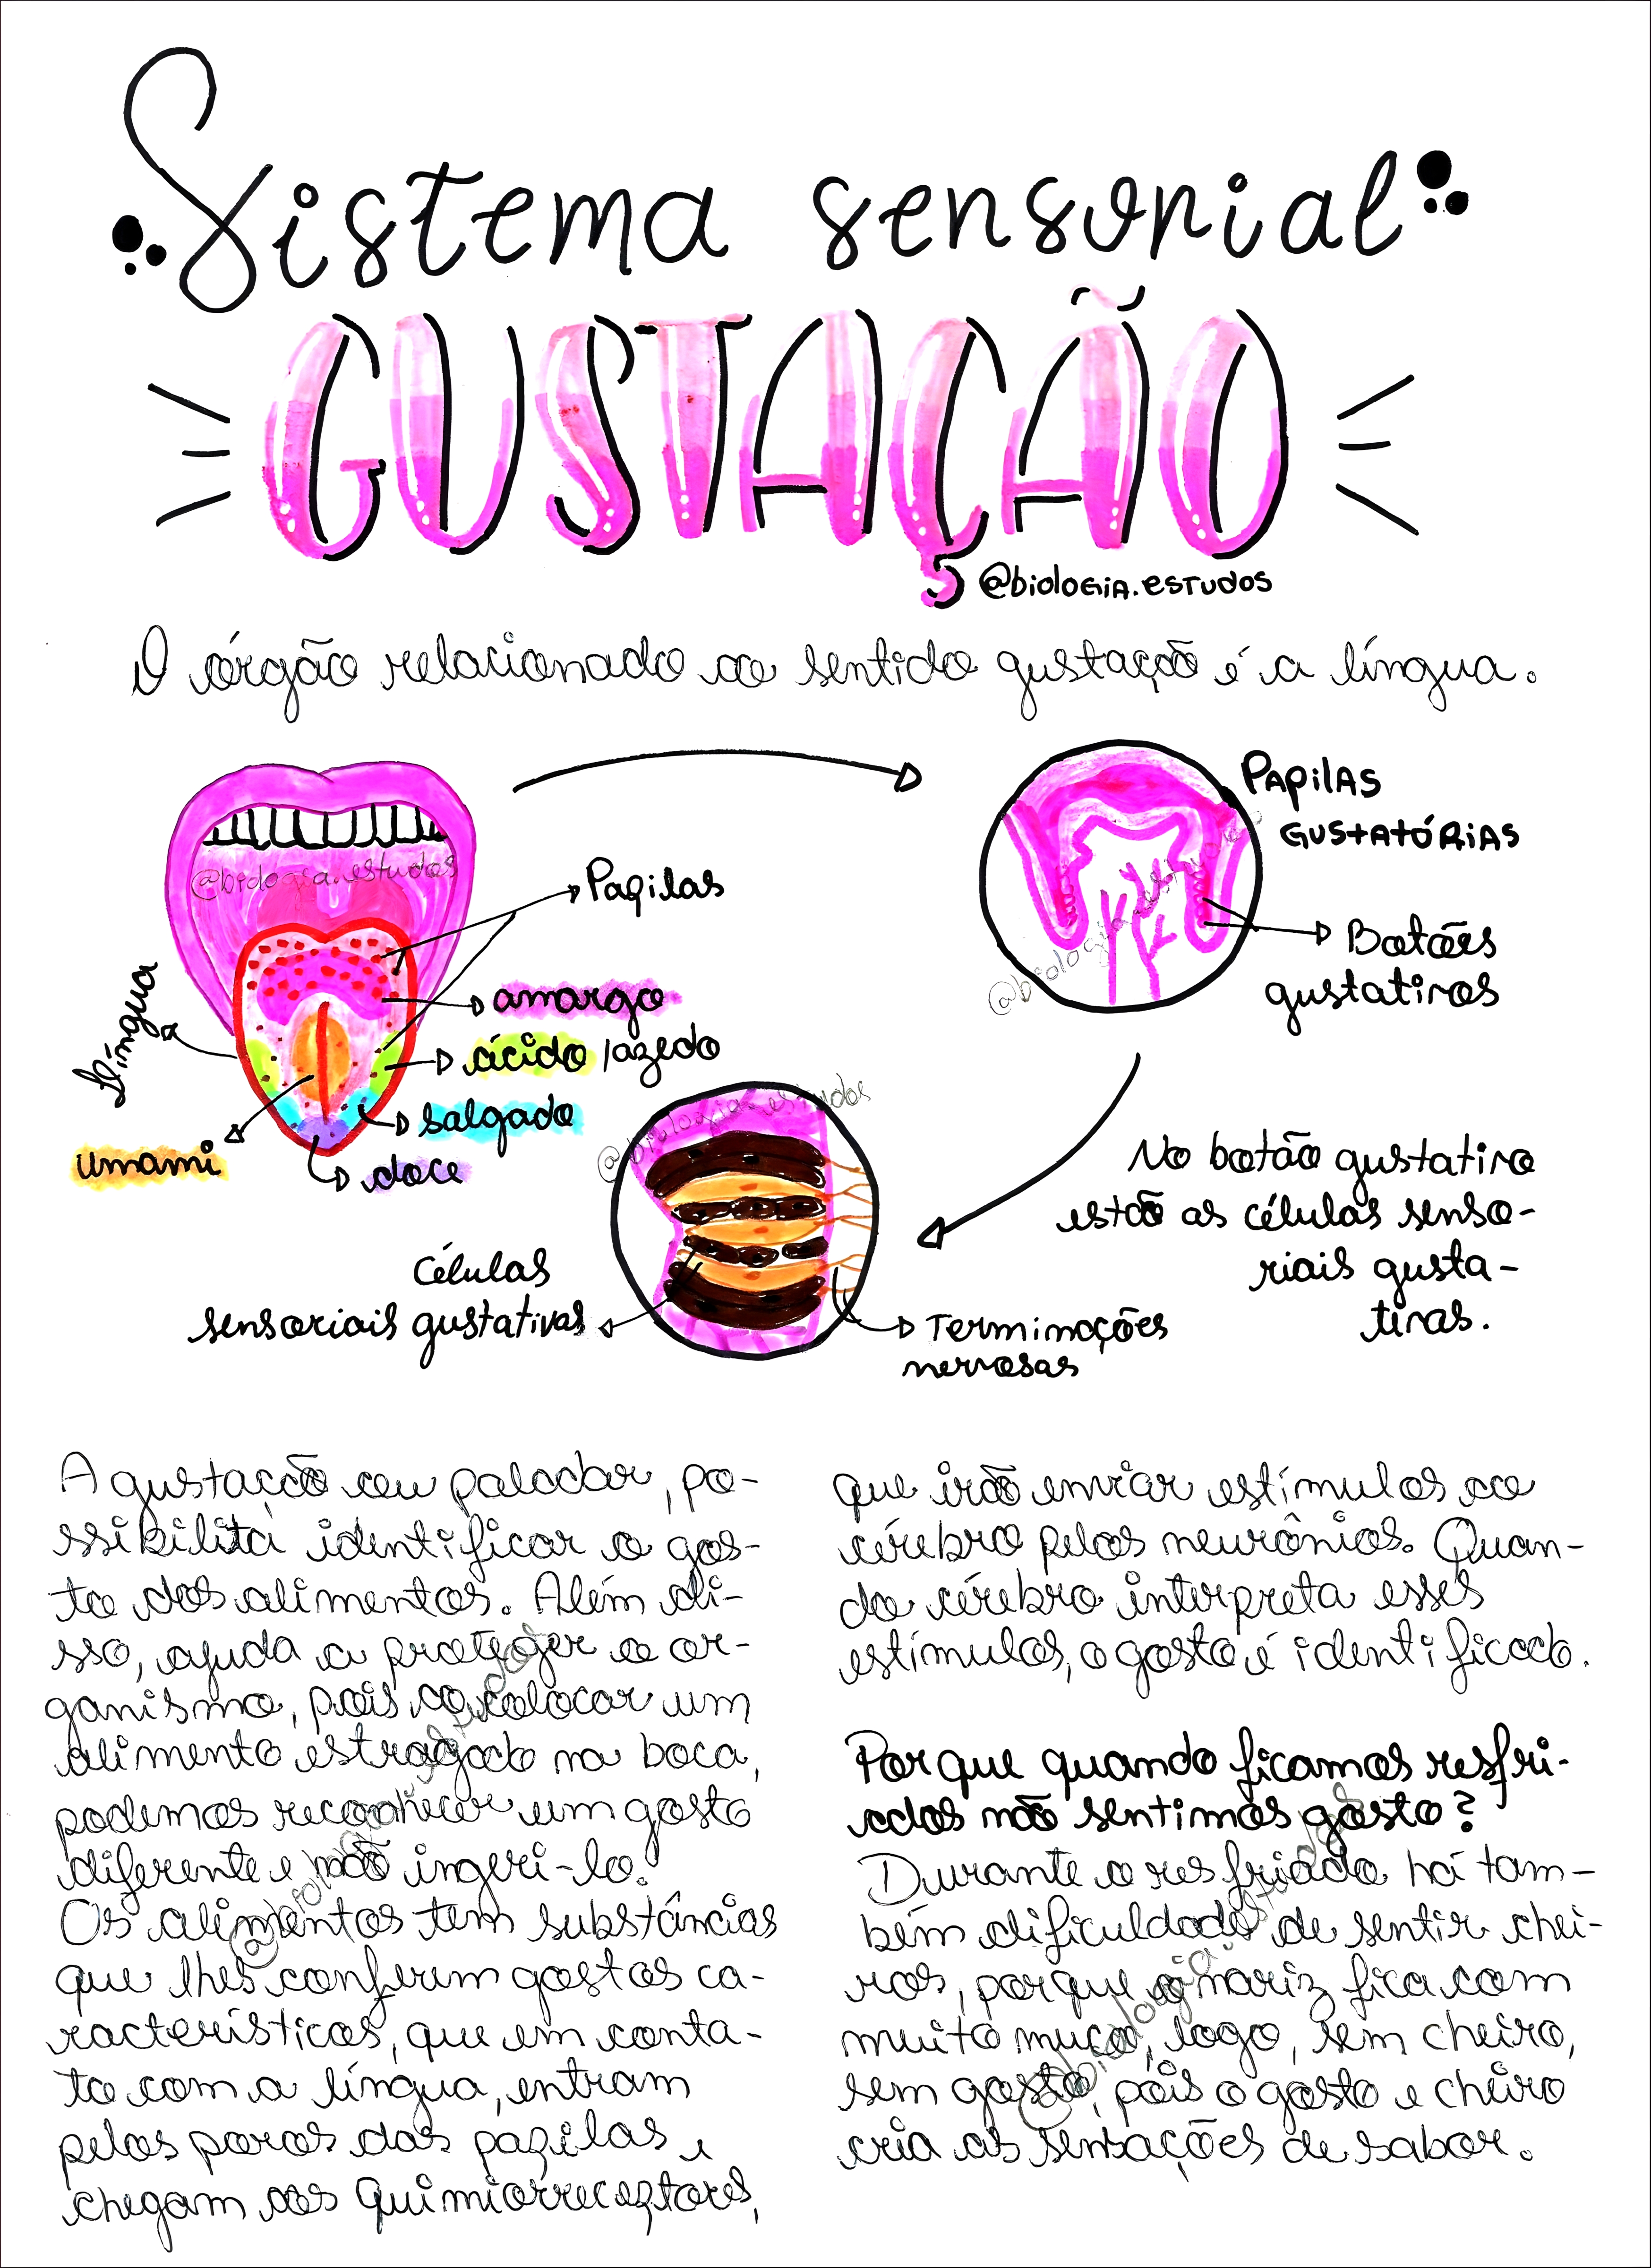 Sistema sensorial
GUSTAÇÃO
@biologia.estudos
O órgão relacionado ao sentido gustação é a língua.
@biologia.estudos
Papilas
amargo
ácido/azedo
salgado
doce
umami
Língua
PAPILAS
GUSTATÓRIAS
Botões
gustativos
@biologia.estudos
No botão gustativo
estão as células senso-
riais gusta-
tivas.
@biologia.estudos
Células
sensoriais gustativas
Terminações
nervosas
A gustação ou paladar, po-
ssibilita identificar o gos-
to dos alimentos. Além di-
sso, ajuda a proteger o or-
ganismo, pois ao colocar um
alimento estragado na boca,
podemos reconhecer um gosto
diferente e não ingeri-lo.
Os alimentos tem substâncias
que lhes conferem gostos ca-
racterísticos, que em conta-
to com a língua, entram
pelos poros das papilas e
chegam aos quimiorreceptores,
@biologia.estudos
que irão enviar estímulos ao
cérebro pelos neurônios. Quan-
do cérebro interpreta esses
estímulos, o gosto é identificado.
Por que quando ficamos resfri-
ados não sentimos gosto?
Durante o resfriado há tam-
bém dificuldade de sentir chei-
ros, porque o nariz fica com
muito muco, logo, sem cheiro,
sem gosto, pois o gosto e cheiro
cria as sensações de sabor.
@biologia.estudos